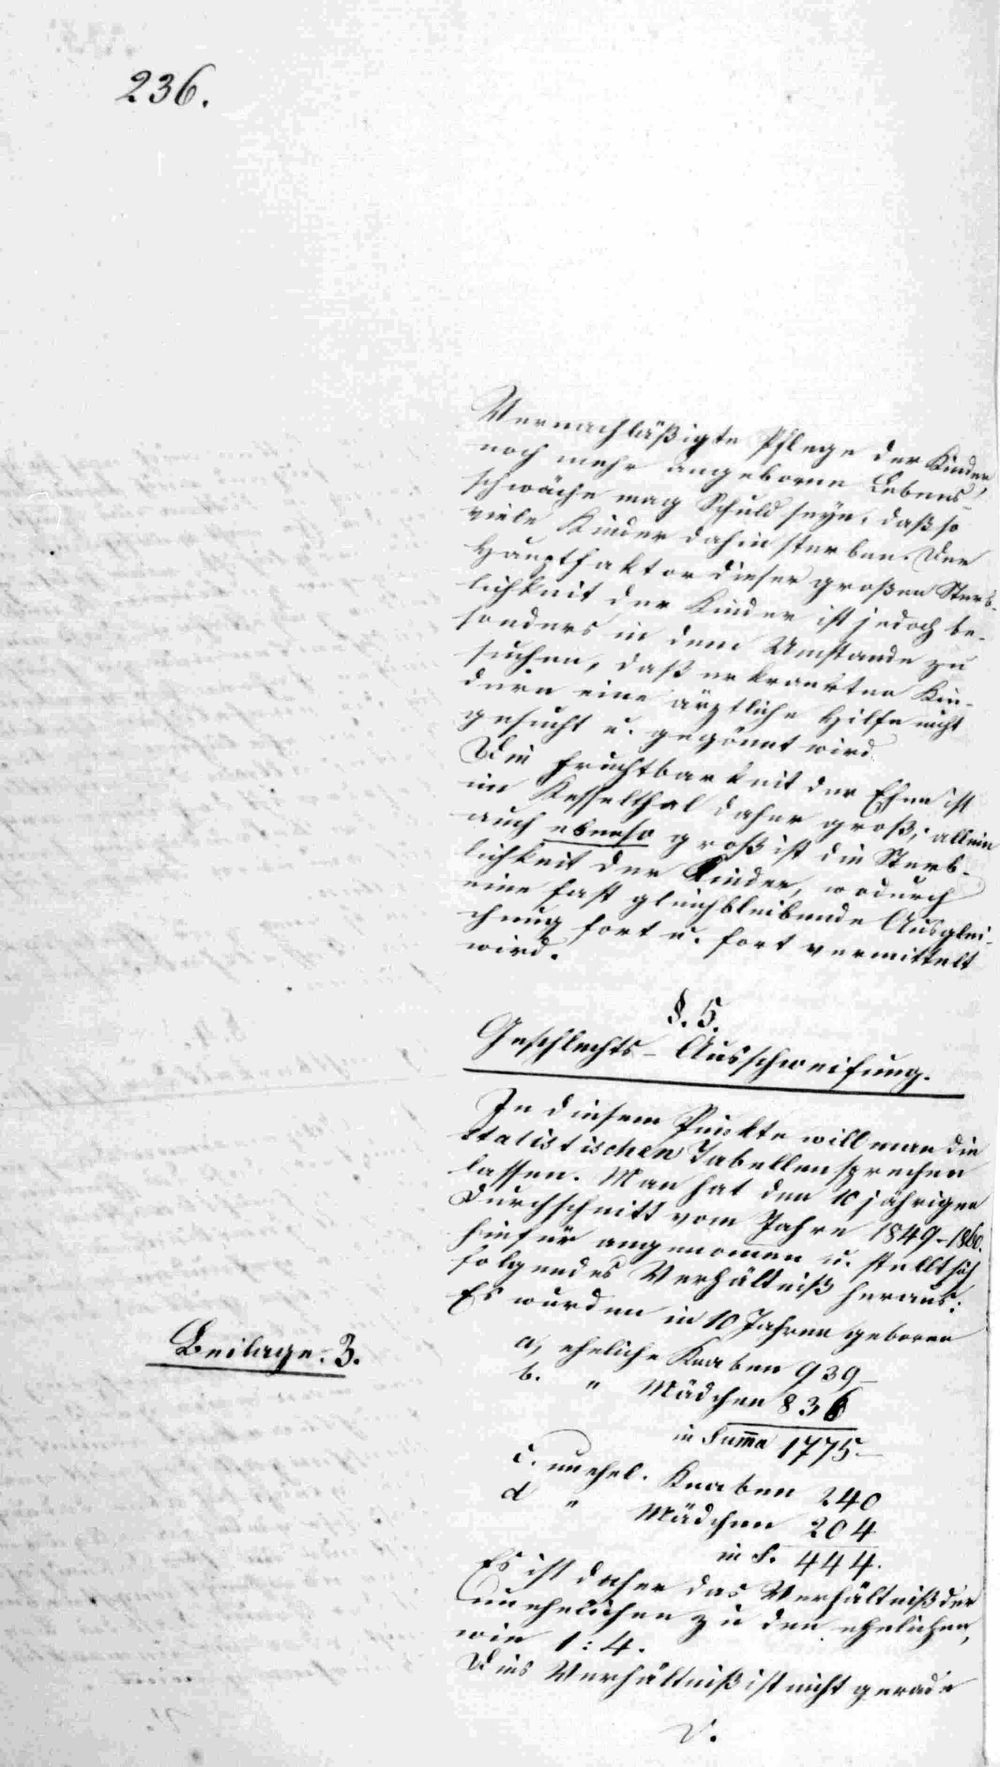 236.
Vernachläßigte Pflege der Kinder,
noch mehr angeborne Lebens-
schwäche mag Schuld seyn, daß so
viele Kinder dahinsterben. Der
Hauptfaktor dieser großen Sterb-
lichkeit der Kinder ist jedoch be-
sonders in dem Umstande zu
suchen, daß erkrankten Kin-
dern eine ärztliche Hilfe nicht
gesucht u. gegönnt wird
Die Fruchtbarkeit der Ehen ist
im Kesselthal daher groß; allein
auch ebenso groß ist die Sterb-
lichkeit der Kinder, wodurch
eine fast gleichbleibende Ausglei-
chung fort u. fort vermittelt
wird.
§. 5.
Geschlechts-Ausschweifung.
In diesem Punkte will man die
statistischen Tabellen sprechen
lassen. Man hat den 10jährigen
Durchschnitt vom Jahre 1849-1860.
hiefür angenomen u. stellt sich
folgendes Verhältniß heraus:
Es wurden in 10 Jahren geboren
Beilage: 3.
a, eheliche Knaben 939
b. " Mädchen 836
in Summa 1775
c. unehel. Knaben 240
d " Mädchen 204
in S. 444.
Es ist daher das Verhältniß der
unehelichen zu den ehelichen,
wie 1:4.
Dies Verhältniß ist nicht gerade